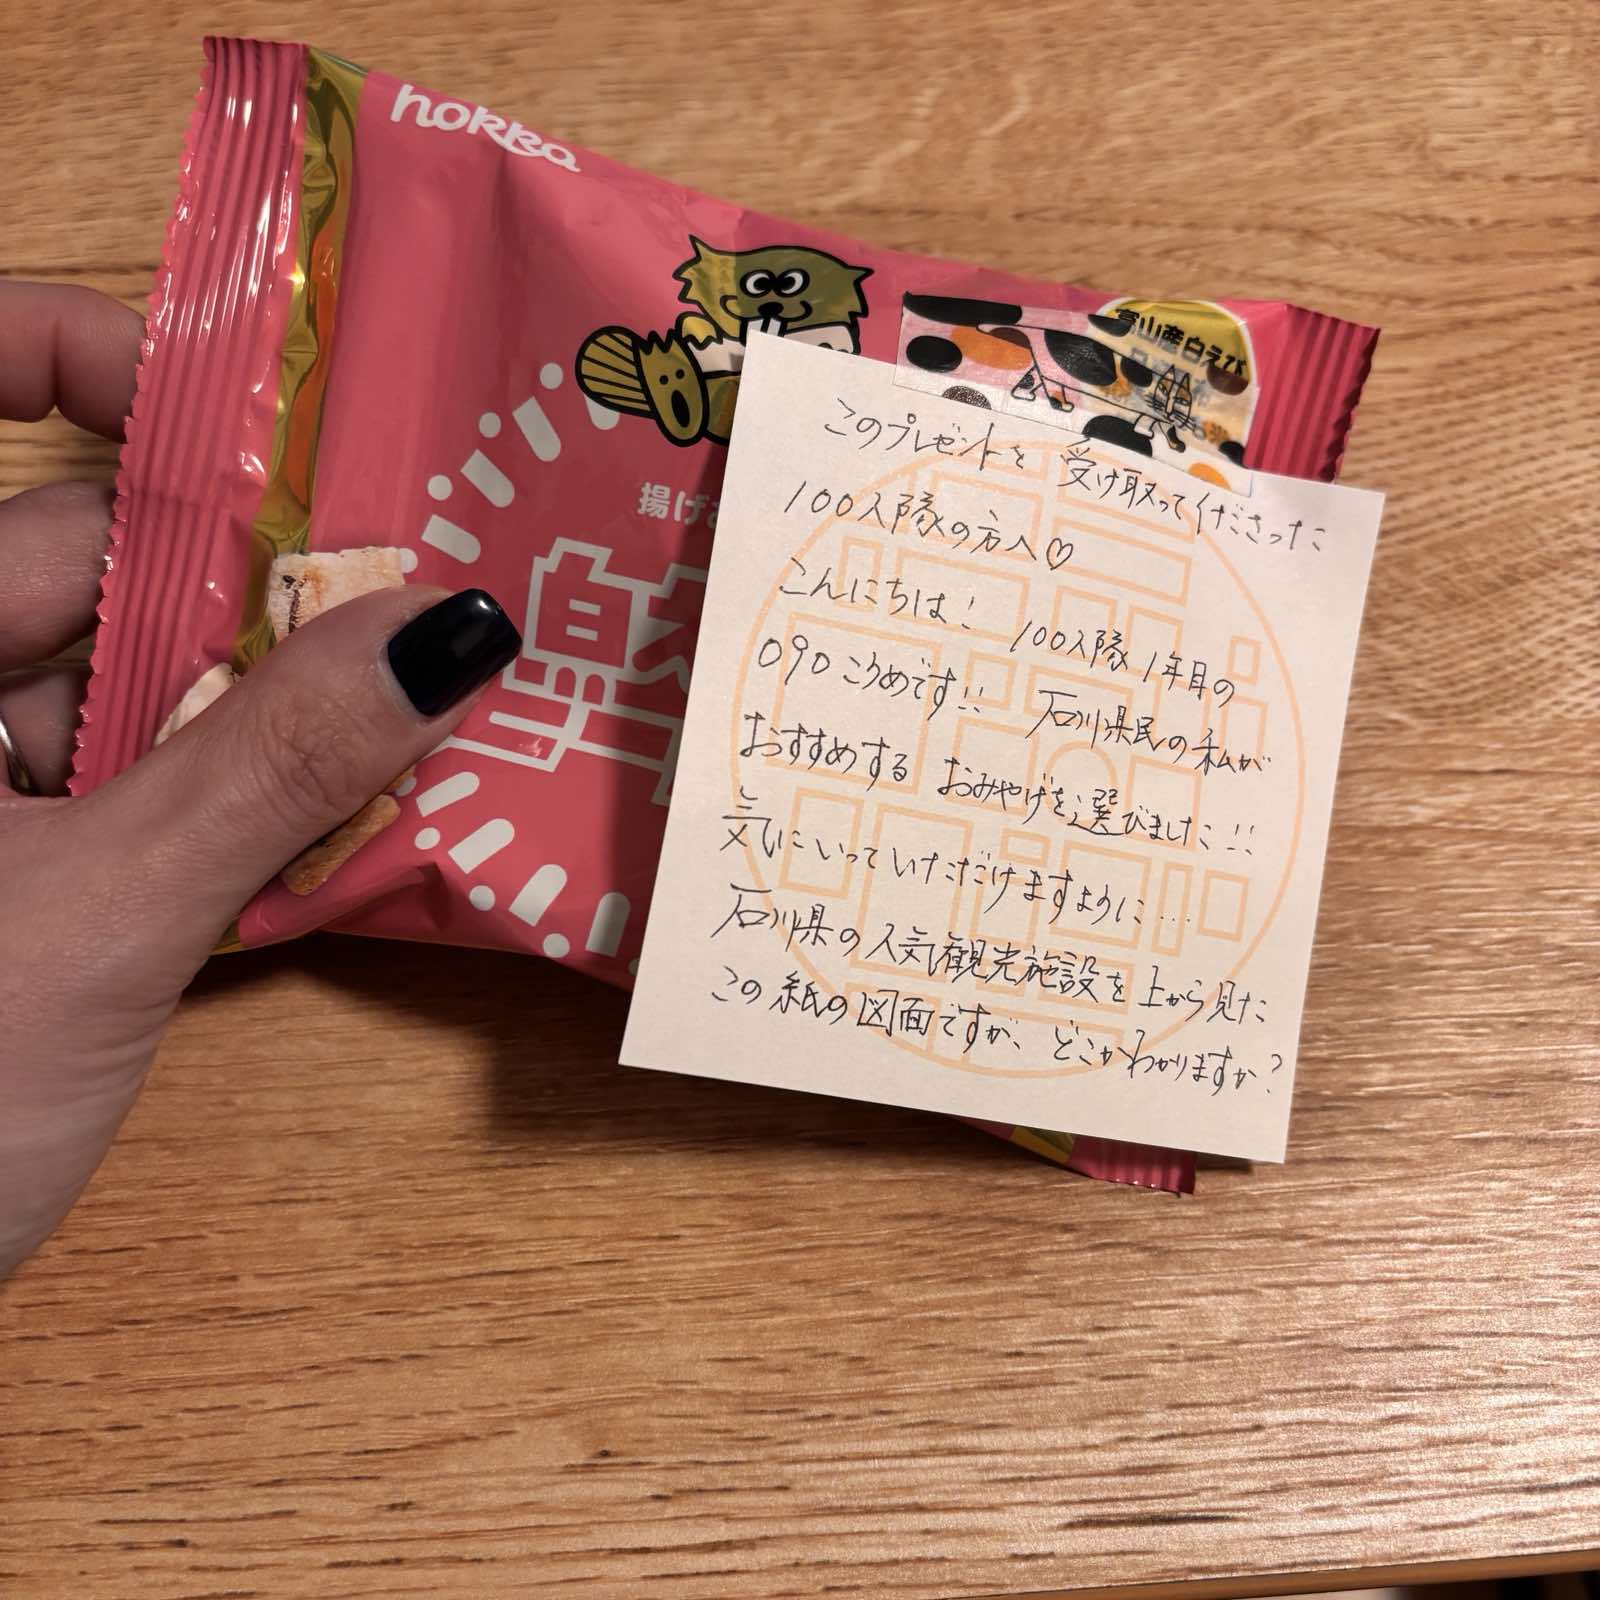 hokka
富山産白えび
揚げ
白え
このプレゼントを 受け取って下ださった
100人隊の方へ♡
こんにちは! 100人隊 1年目の
090 こうめです!! 石川県民の私が
おすすめする おみやげを選びました!!
気にいっていただけますように…
石川県の人気観光施設を上から見た
この紙の図面ですが、どこかわかりますか?